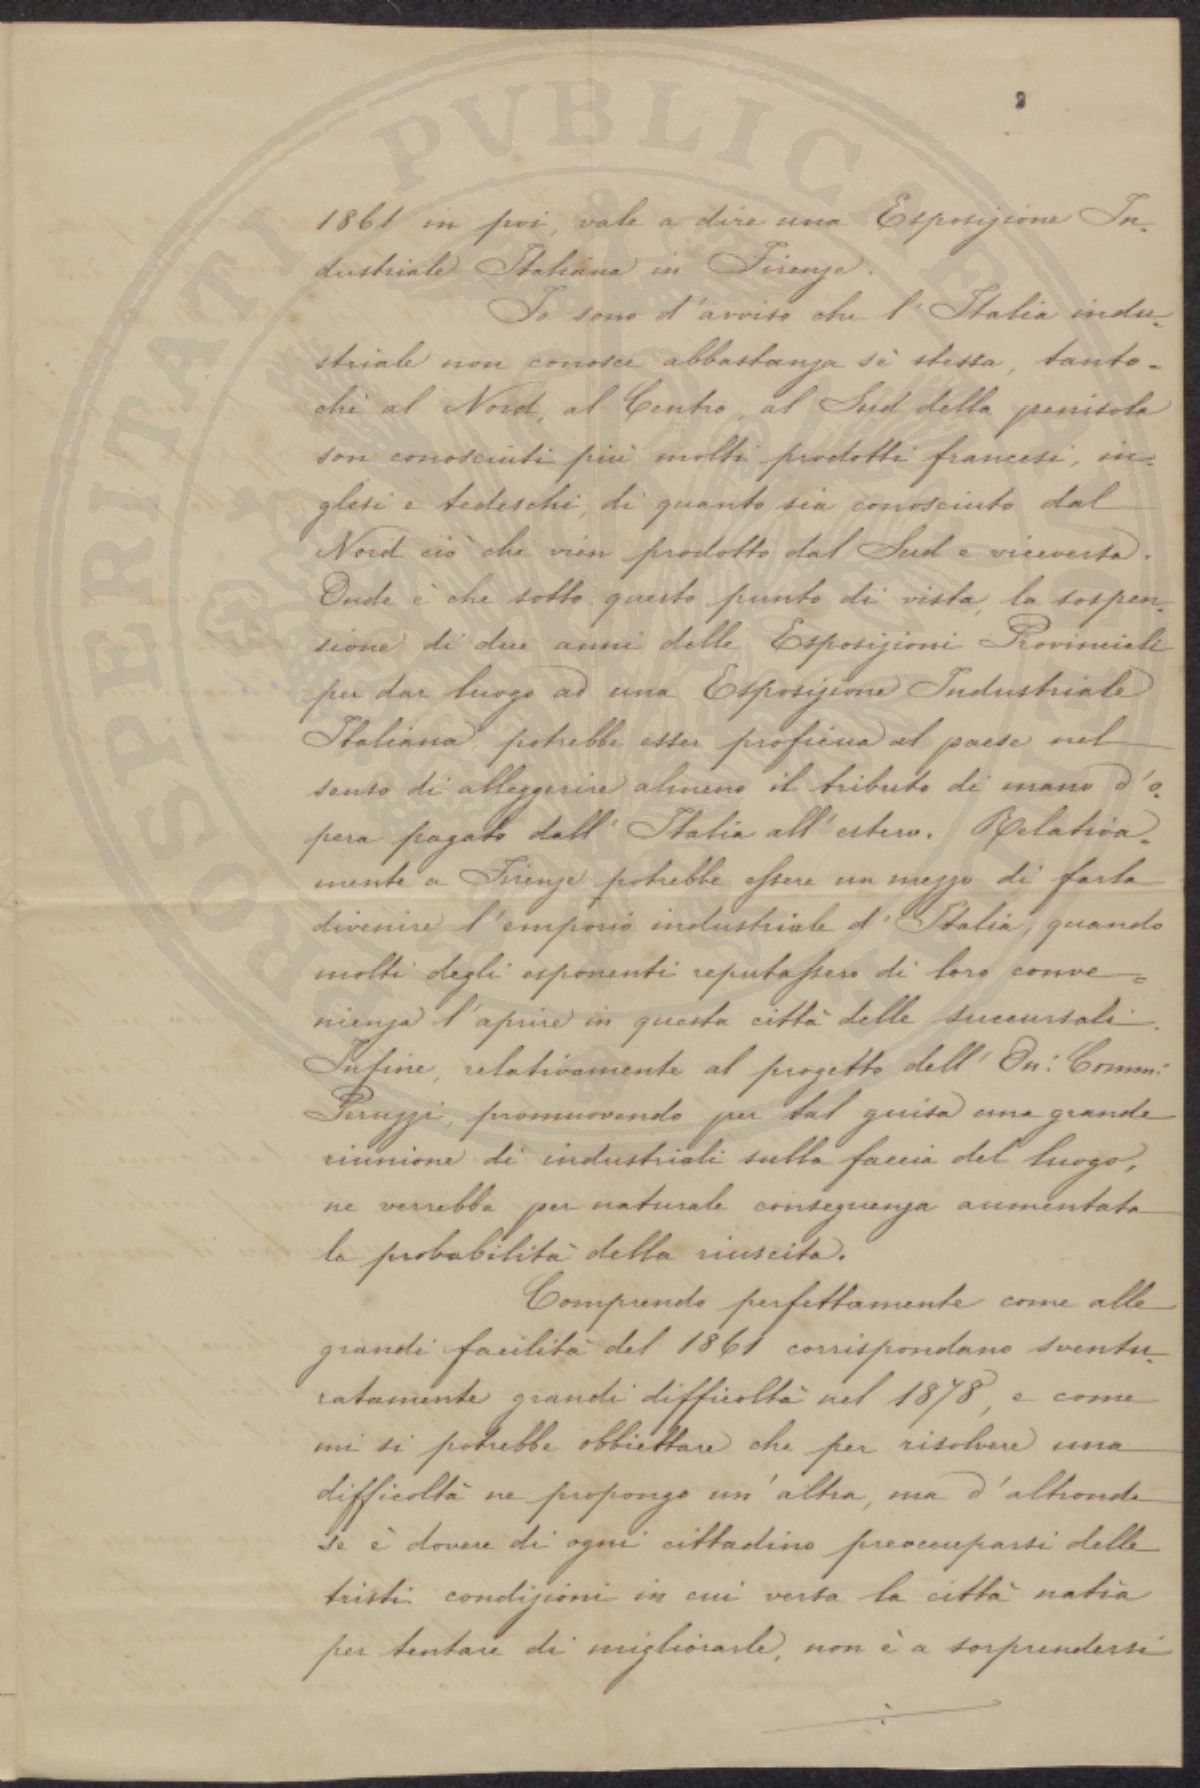 1861 in poi, vale a dire una Esposizione In-
dustriale Italiana in Firenze.
Io sono d'avviso che l'Italia indu-
striale non conosce abbastanza sè stessa, tanto-
chè al Nord, al Centro, al Sud della penisola
son conosciuti più molti prodotti francesi, in-
glesi e tedeschi, di quanto sia conosciuto dal
Nord ciò che vien prodotto dal Sud e viceversa.
Onde è che sotto questo punto di vista, la sospen-
sione di due anni delle Esposizioni Provinciali
per dar luogo ad una Esposizione Industriale
Italiana, potrebbe esser proficua al paese nel
senso di alleggerire almeno il tributo di mano d'o-
pera pagato dall'Italia all'estero. Relativa-
mente a Firenze potrebbe essere un mezzo di farla
divenire l'emporio industriale d'Italia, quando
molti degli esponenti reputassero di loro conve-
nienza l'aprire in questa città delle succursali.
Infine, relativamente al progetto dell'On: Comm:
Peruzzi, promuovendo per tal guisa una grande
riunione di industriali sulla faccia del luogo,
ne verrebbe per naturale conseguenza aumentata
la probabilità della riuscita.
Comprendo perfettamente come alle
grandi facilità del 1861 corrispondano sventu-
ratamente grandi difficoltà nel 1878, e come
mi si potrebbe obbiettare che per risolvere una
difficoltà ne propongo un'altra, ma d'altronde
se è dovere di ogni cittadino preoccuparsi delle
tristi condizioni in cui versa la città natìa
per tentare di migliorarle, non è a sorprendersi
PVBLICAE PROSPERITATI